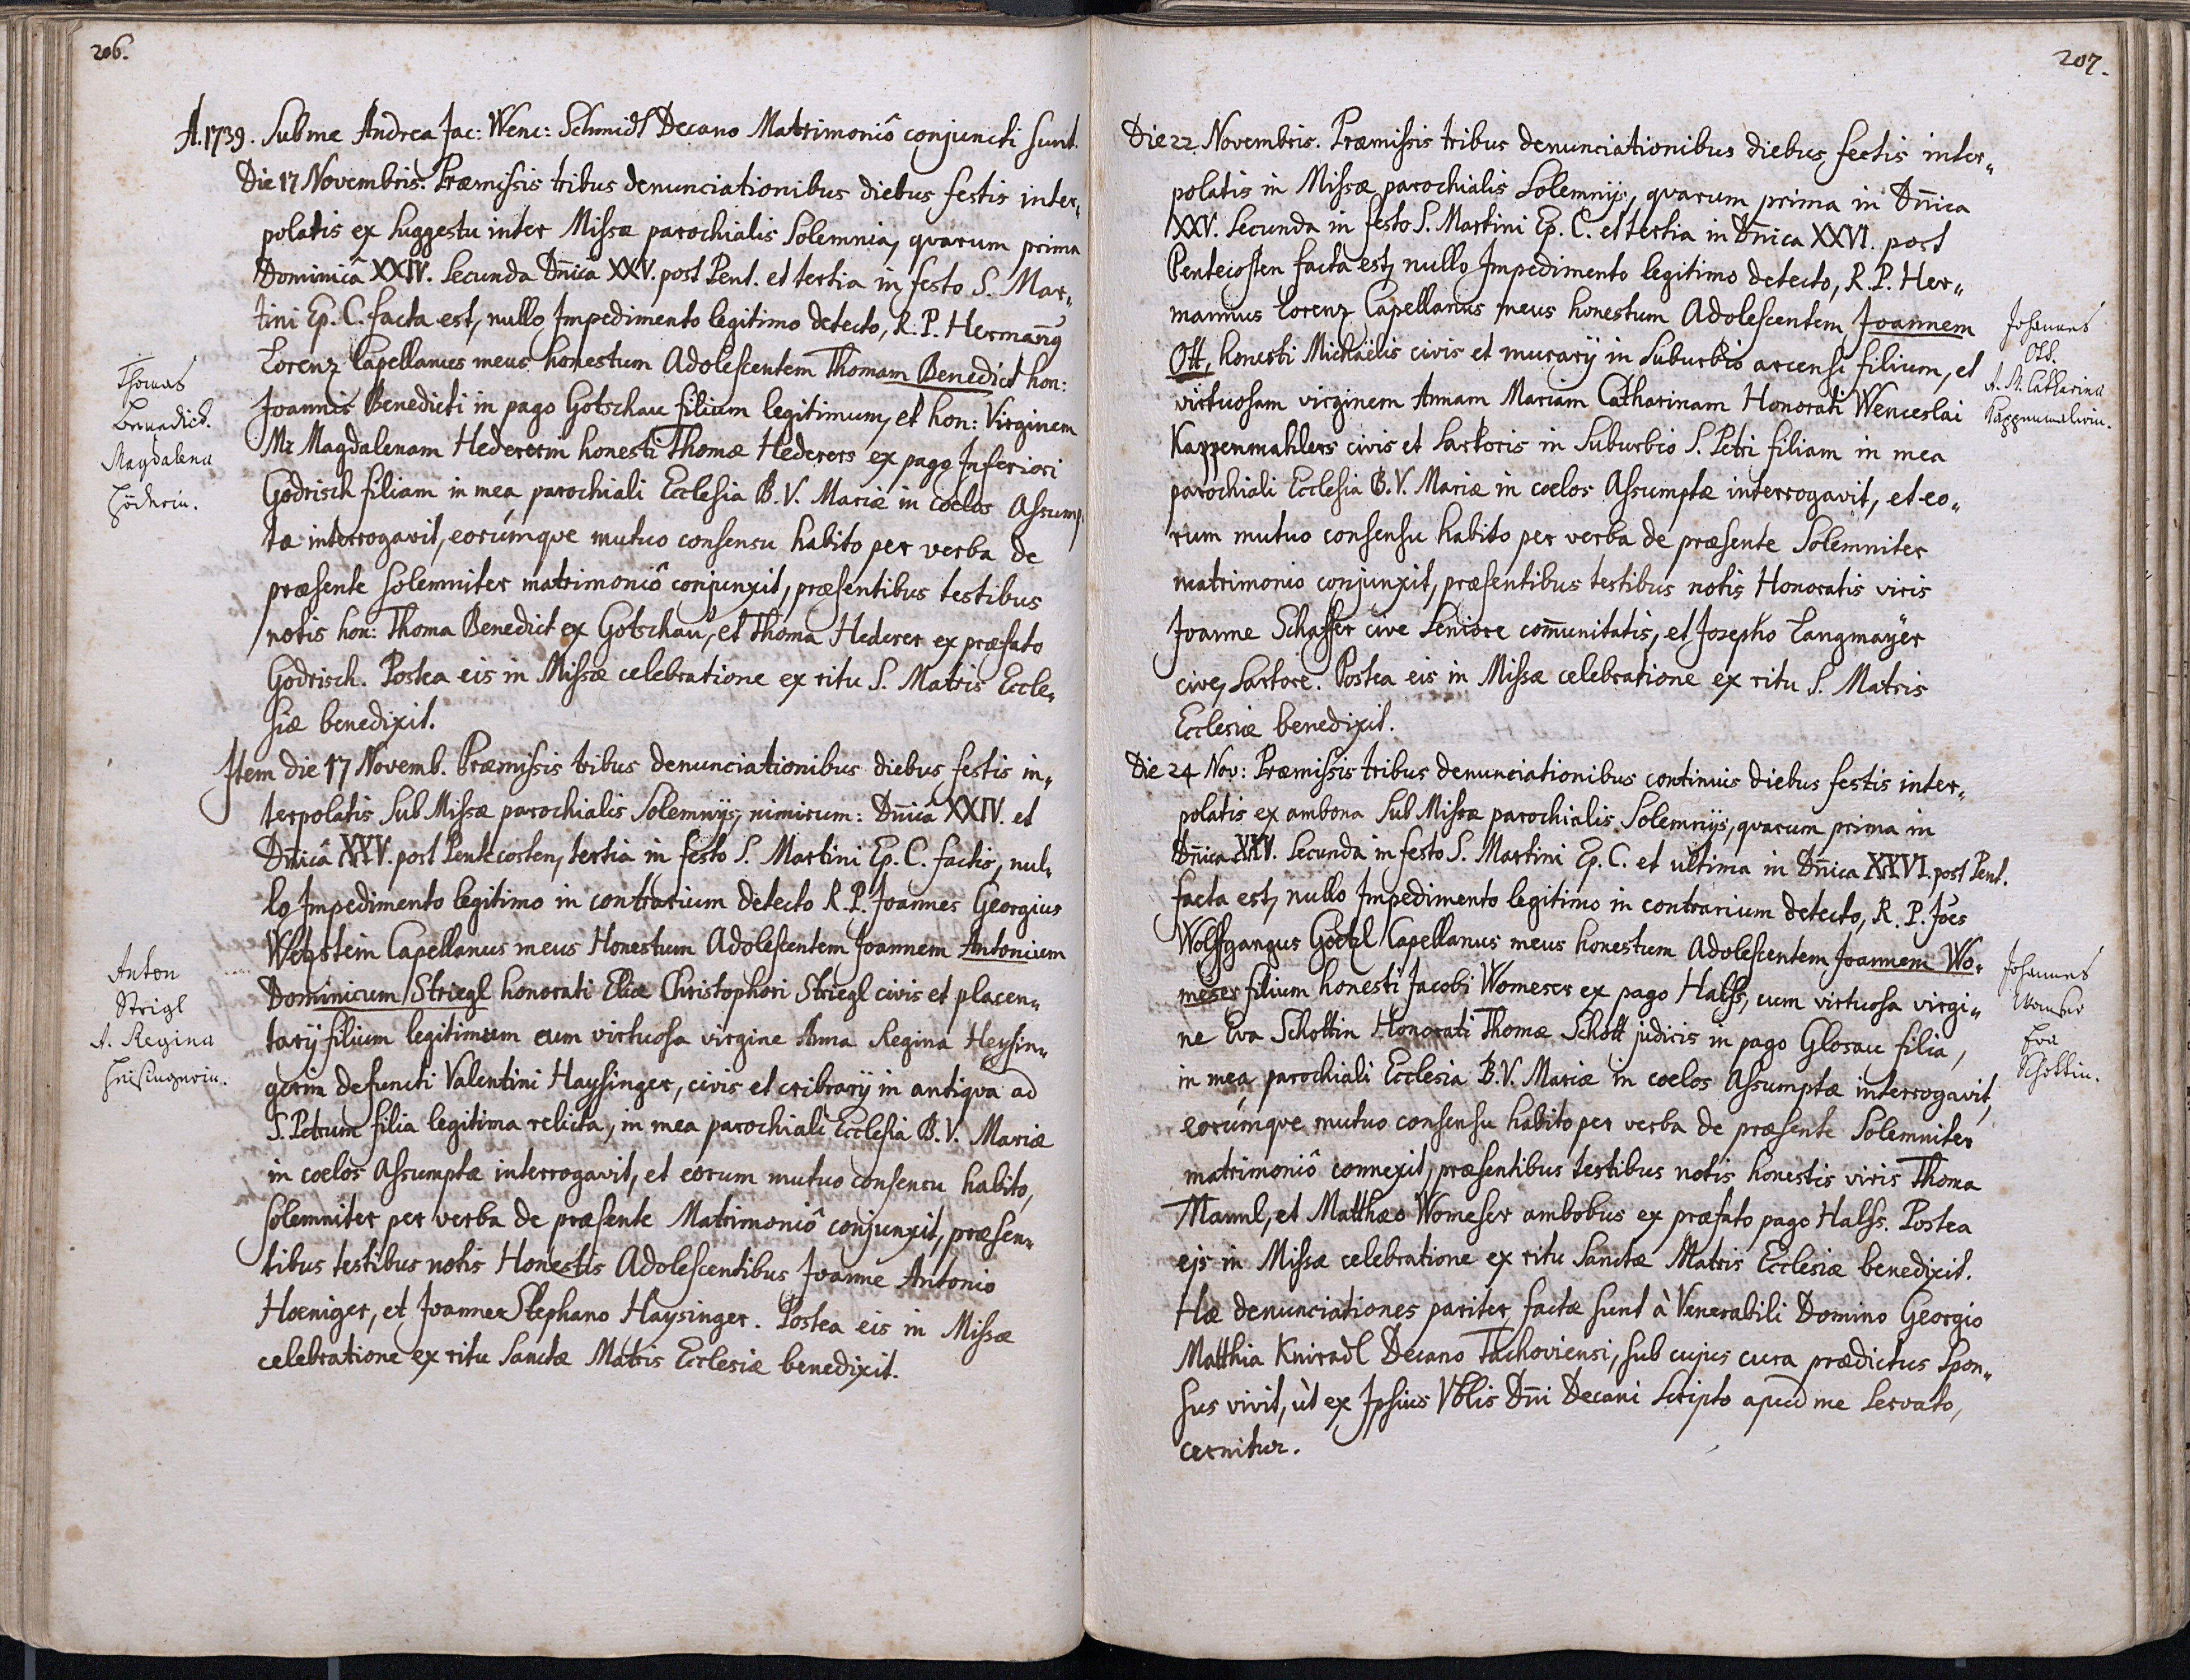 206.
A. 1739. Sub me Andrea Jac: Wenc: Schmidt Decano Matrimoniô conjuncti sunt.
Die 17 Novembris. Præmissis tribus denunciationibus diebus festis inter„
polatis ex suggestu inter Missæ parochialis Solemnia, quarum prima
Dominicâ XXIV. Secunda Dn̄icâ XXV. post Pent. et tertia in festo S. Mar„
tini Ep. C. facta est, nullo Impedimento legitimo detecto, R. P. Hermann9
Lorenz Capellanus meus honestum Adolescentem Thomam Benedict hon:
Joannis Benedicti in pago Gotschau filium legitimum, et hon: Virginem
Mr Magdalenam Hedererin honesti Thomæ Hederers ex pago Inferiori
Godrisch filiam in mea parochiali Ecclesia B. V. Mariæ in coelos Assump„
tæ interrogavit, eorúmque mutuo consensu habito per verba de
præsente solemniter matrimoniô conjunxit, præsentibus testibus
notis hon: Thoma Benedict ex Gotschau, et Thoma Hederer ex præfato
Godrisch. Postea eis in Missæ celebratione ex ritu S. Matris Eccle„
siæ benedixit.
Thomas
Benedict.
Magdalena
Höderin.
Item die 17 Novemb. Præmissis tribus denunciationibus diebus festis in„
terpolatis Sub Missæ parochialis Solemnijs, nimirum: Dn̄icâ XXIV. et
Dn̄icâ XXV. post Pentecosten, tertia in festo S. Martini Ep. C. factis, nul„
lo Impedimento legitimo in contrarium detecto R. P. Joannes Georgius
Wetzstein Capellanus meus Honestum Adolescentem Joannem Antonium
Dominicum Striegl honorati Eliæ Christophori Striegl civis et placen„
tarij filium legitimum cum virtuosa virgine Anna Regina Heysin„
gerin defuncti Valentini Haysinger, civis et cribrarij in antiqva ad
S. Petrum filia legitima relicta, in mea parochiali Ecclesia B. V. Mariæ
in coelos Assumptæ interrogavit, et eorum mutuo consensu habito,
solemniter per verba de præsente Matrimoniô conjunxit, præsen„
tibus testibus notis Honestis Adolescentibus Joanne Antonio
Hœniger, et Joanne Stephano Haysinger. Postea eis in Missæ
celebratione ex ritu Sanctæ Matris Ecclesiæ benedixit.
Anton
Strigl
A. Regina
Heisingerin.
207.
Die 22 Novembris. Præmissis tribus denunciationibus diebus festis inter„
polatis in Missæ parochialis Solemnijs, quarum prima in Dn̄ica
XXV. Secunda in festo S. Martini Ep. C. et tertia in Dn̄ica XXVI. post
Pentecosten facta est, nullo Impedimento legitimo detecto, R. P. Her„
mannus Lorenz Capellanus meus honestum Adolescentem Joannem
Ott, honesti Michaëlis civis et murarij in Suburbio arcensi filium, et
virtuosam virginem Annam Mariam Catharinam Honorati Wenceslai
Kappenmahlers civis et Sartoris in Suburbio S. Petri filiam in mea
parochiali Ecclesia B. V. Mariæ in coelos Assumptæ interrogavit, et eo„
rum mutuo consensu habito per verba de præsente Solemniter
matrimonio conjunxit, præsentibus testibus notis Honoratis viris
Joanne Schaffer cive Seniore com̄unitatis, et Josepho Langmaÿer
cive, Sartore. Postea eis in Missæ celebratione ex ritu S. Matris
Ecclesiæ benedixit.
Johannes
Ott.
A. M. Catharina
Kappenmalerin.
Die 24 Nov: Præmissis tribus denunciationibus continuis diebus festis inter„
polatis ex ambona Sub Missæ parochialis Solemnijs, quarum prima in
Dn̄ica XXV. Secunda in festo S. Martini Ep. C. et ultima in Dn̄ica XXVI. post Pent.
facta est, nullo Impedimento legitimo in contrarium detecto, R. P. Joēs
Wolffgangus Goetzl Capellanus meus honestum Adolescentem Joannem Wo„
meser filium honesti Jacobi Womeser ex pago Halss, cum virtuosa virgi„
ne Eva Schottin Honorati Thomæ Schott judicis in pago Glosau filia,
in mea parochiali Ecclesia B. V. Mariæ in coelos Assumptæ interrogavit,
eorúmque mutuo consensu habito per verba de præsente Solemniter
matrimoniô connexit, præsentibus testibus notis honestis viris Thoma
Mannl, et Matthæo Womeser ambobus ex præfato pago Halss. Postea
ejs in Missæ celebratione ex ritu Sanctæ Matris Ecclesiæ benedixit.
Hæ denunciationes pariter factæ sunt à Venerabili Domino Georgio
Matthia Kniradl Decano Tachoviensi, sub cujus cura prædictus Spon„
sus vivit, ùt ex Ipsius Vblis Dn̄i Decani Scripto apud me Servato,
cernitur.
Johannes
Womser
Eva
Schottin.